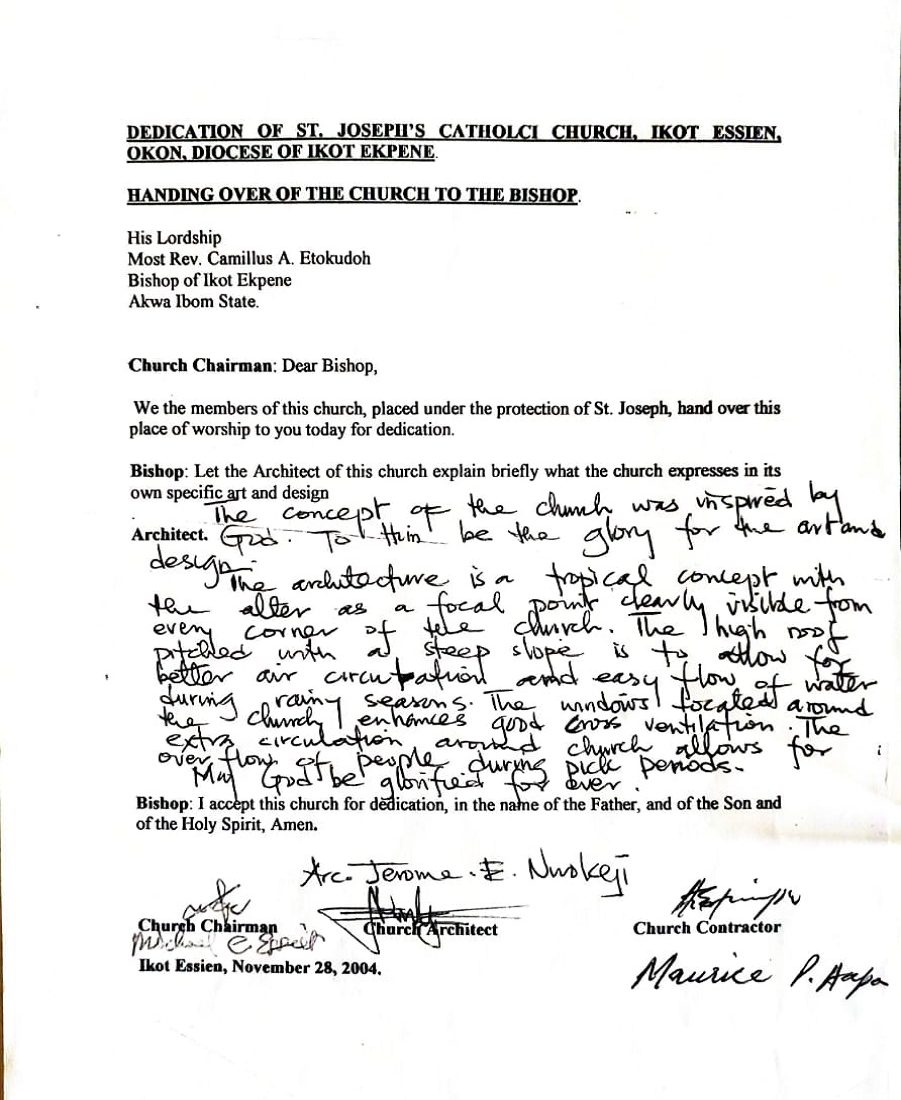 DEDICATION OF ST. JOSEPH'S CATHOLCI CHURCH, IKOT ESSIEN,
OKON, DIOCESE OF IKOT EKPENE.
HANDING OVER OF THE CHURCH TO THE BISHOP.
His Lordship
Most Rev. Camillus A. Etokudoh
Bishop of Ikot Ekpene
Akwa Ibom State.
Church Chairman: Dear Bishop,
We the members of this church, placed under the protection of St. Joseph, hand over this
place of worship to you today for dedication.
Bishop: Let the Architect of this church explain briefly what the church expresses in its
own specific art and design
The concept of the church was inspired by
Architect. God. To Him be the glory for the art and
design.
The architecture is a tropical concept with
the alter as a focal point clearly visible from
every corner of the church. The high roof
pitched with a steep slope is to allow for
better air circulation and easy flow of water
during rainy seasons. The windows located around
the church enhances good cross ventilation. The
extra circulation around church allows for
over flow of people during pick periods.
May God be glorified for ever.
Bishop: I accept this church for dedication, in the name of the Father, and of the Son and
of the Holy Spirit, Amen.
Arc. Jerome. E. Nwokeji
Church Chairman Church Architect Church Contractor
Michael E.
Ikot Essien, November 28, 2004.
Maurice P.